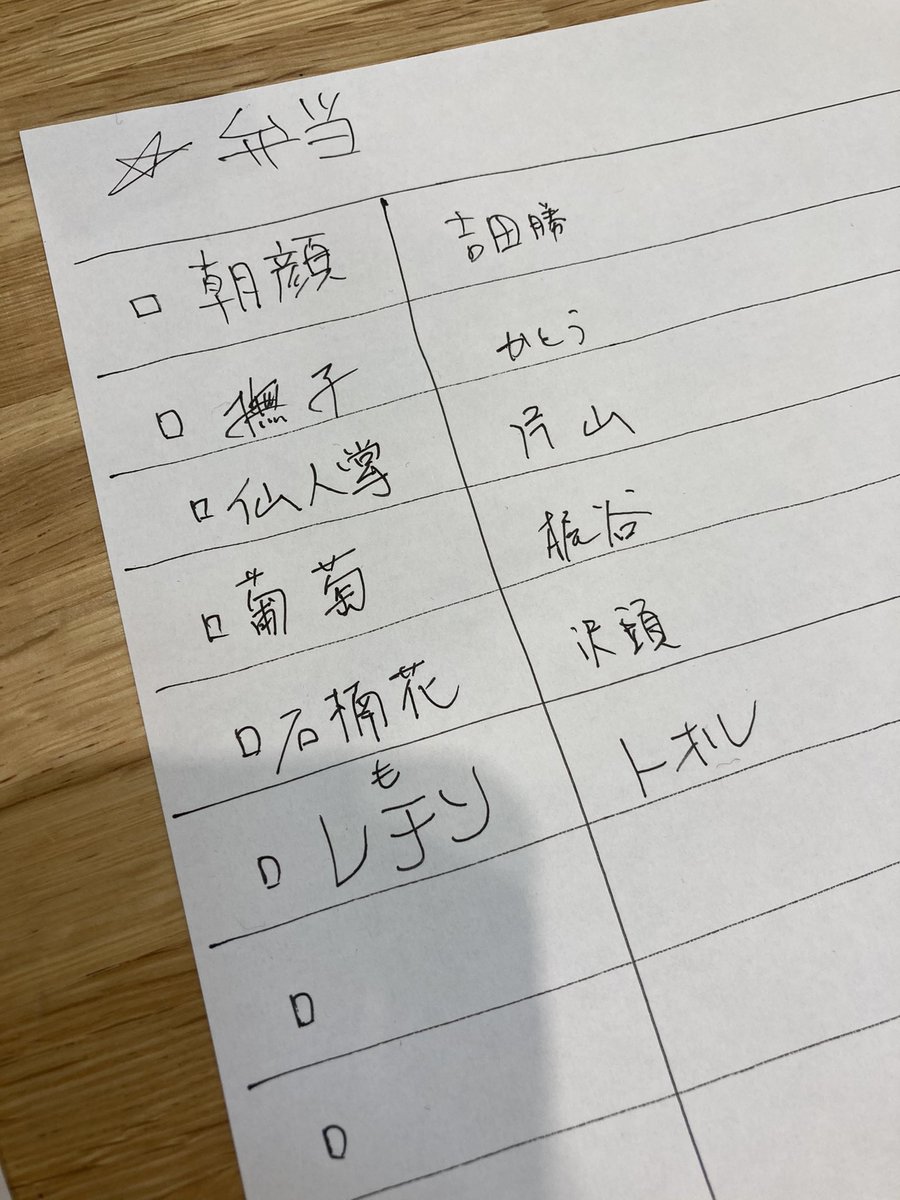 ☆ 弁当
□ 朝顔 吉田勝
□ 撫子 かとう
□ 仙人掌 片山
□ 葡萄 梶谷
□ 石楠花 沢頭
も
□ レチソ トオル
□
□